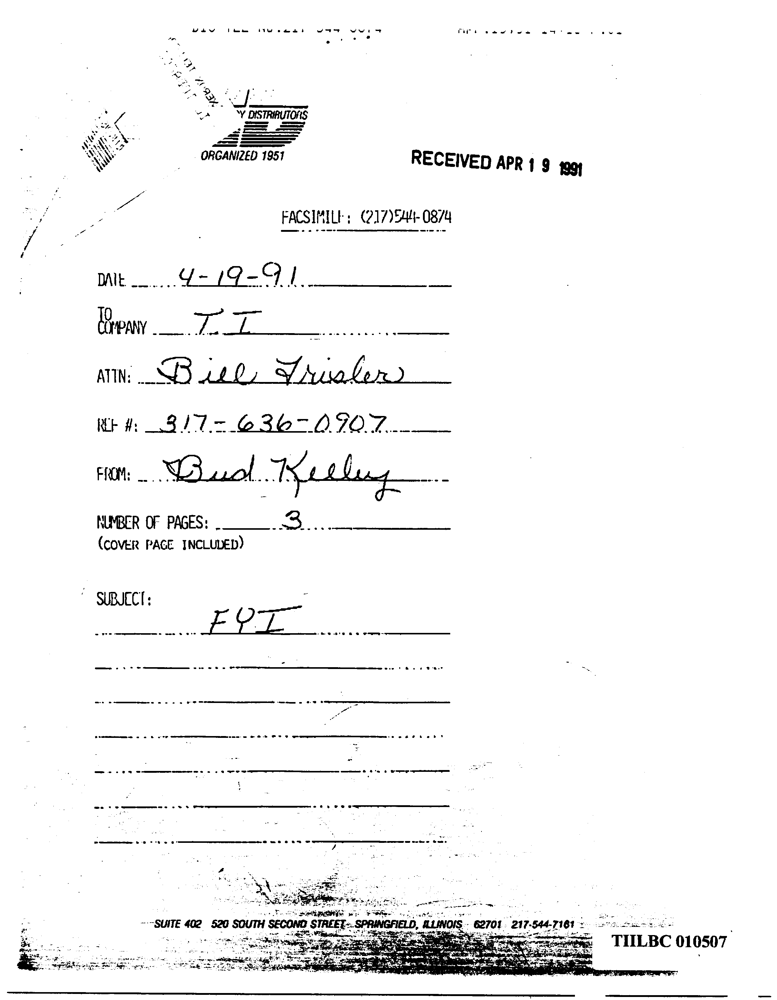 Y DISTRIBUTORS
ORGANIZED 1951
RECEIVED APR 19 1991
FACSIMILE: (217)544-0874
DATE 4-19-91
TO
COMPANY T.I
ATTN: Bill Trisler
REF #: 317-636-0907
FROM: Bud Kelley
NUMBER OF PAGES: 3
(COVER PAGE INCLUDED)
SUBJECT:
FYI
SUITE 402 520 SOUTH SECOND STREET - SPRINGFIELD, ILLINOIS 62701 217-544-7161
TIILBC 010507